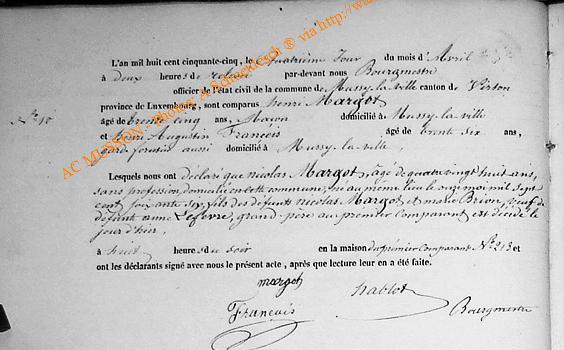 L'an mil huit cent cinquante-cinq, le quatrième jour du mois d'Avril
à deux heures de relevée par-devant nous Bourgmestre
officier de l'état civil de la commune de Mussy-la-ville canton de Virton
province de Luxembourg, sont comparus henri Margot
âgé de trente cinq ans, Maçon domicilié à Mussy-la-ville
N° 10
et henri Augustin François âgé de trente six ans,
garde forestier aussi domicilié à Mussy-la-ville,
Lesquels nous ont déclaré que nicolas Margot, âgé de quatre vingt huit ans,
sans profession, domicilié en cette commune, né au même lieu le mai mil sept
cent soixante six, fils des défunts nicolas Margot et marie Brion, veuf de
défunte anne Lefevre, grand-père au premier Comparant est décédé le
jour d'hier,
à huit heures du soir en la maison du premier comparant N° 213 et
ont les déclarants signé avec nous le présent acte, après que lecture leur en a été faite.
margot
François
hablot
Bourgmestre
AC MUSSON - Photos A.Schadeck.be ® via http://wa